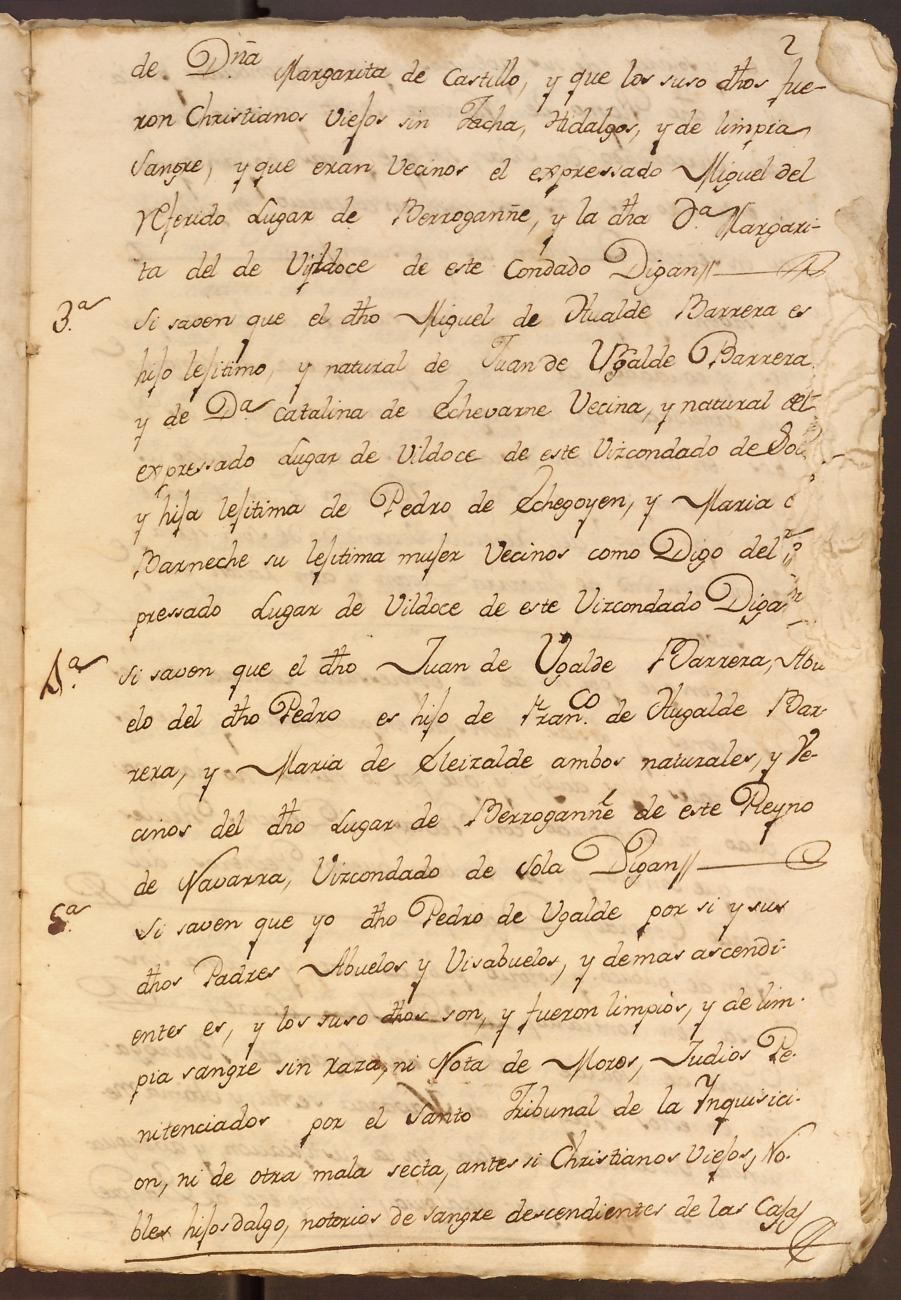 2
de Dña Margarita de Castillo, y que los suso dhos fue-
ron Christianos viejos sin Tacha, Hidalgos, y de limpia
sangre, y que eran Vecinos el expressado Miguel del
referido Lugar de Berroganñe, y la dha Da Margari-
ta del de Vildoce de este Condado Digan//
3.a Si saven que el dho Miguel de Hualde Barrera es
hijo lejitimo, y natural de Juan de Ugalde Barrera
y de Da Catalina de Echevarne Vecina, y natural del
expressado Lugar de Vildoce de este Vizcondado de
y hija lejitima de Pedro de Echegoyen, y Maria
Barneche su lejitima mujer Vecinos como Digo del
pressado Lugar de Vildoce de este Vizcondado Digan
4.a Si saven que el dho Juan de Ugalde Barrera, Abu
elo del dho Pedro es hijo de Franco. de Hugalde Bar-
rera, y Maria de Eleizalde ambos naturales, y Ve-
cinos del dho Lugar de Berroganñe de este Reyno
de Navarra, Vizcondado de Sola Digan//
5.a Si saven que yo dho Pedro de Ugalde por si y sus
dhos Padres Abuelos y Visabuelos, y demas ascendi-
entes es, y los suso dhos son, y fueron limpios, y de lim-
pia sangre sin raza, ni Nota de Moros, Judios Pe-
nitenciados por el Santo Tribunal de la Inquisici-
on, ni de otra mala secta, antes si Christianos Viejos, No-
bles hijosdalgo, notorios de sangre descendientes de las Casas